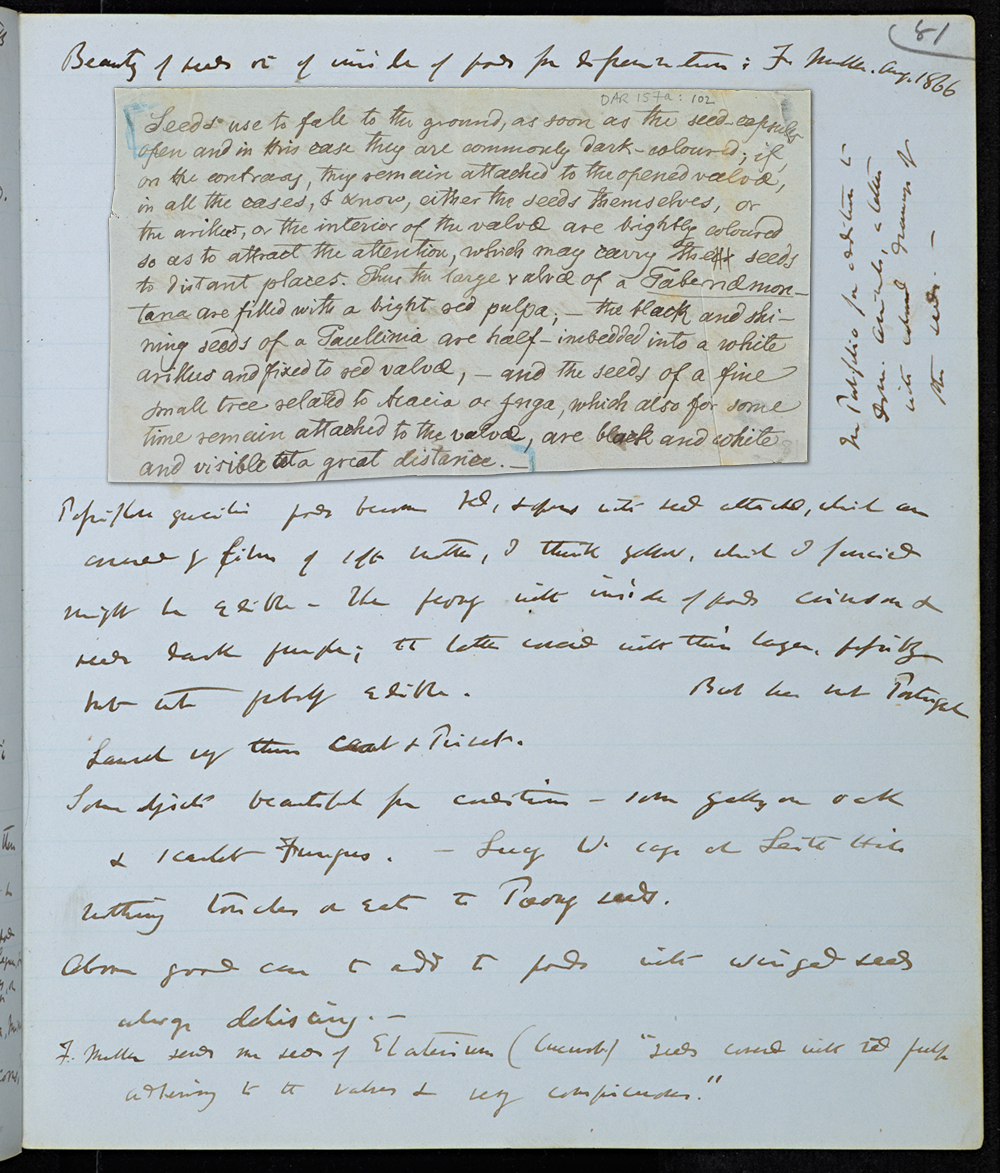 81
Beauty of seeds or of inside of pods for dissemination: F. Muller. Aug. 1866
DAR 157a: 102
Seeds use to fall to the ground, as soon as the seed-capsules
open and in this case they are commonly dark-coloured; if,
on the contrary, they remain attached to the opened valvæ,
in all the cases, I know, either the seeds themselves, or
the arillus, or the interior of the valvæ are brightly coloured
so as to attract the attention, which may carry the seeds
to distant places. Thus the large valvæ of a Tabernæmon-
tana are filled with a bright red pulpa; – the black and shi-
ning seeds of a Paullinia are half-imbedded into a white
arillus and fixed to red valvæ, – and the seeds of a fine
small tree related to Acacia or Inga, which also for some
time remain attached to the valvæ, are black and white
and visible at a great distance. –
In Portfolio for addition to
a letter
with drawing of
the seeds. –
pods become red, & opens with seed attached, which are
covered by film of soft matter, I think yellow, which I fancied
might be edible – The Peony with inside of pods crimson &
seeds dark purple; the latter covered with thin layer,
but not edible. But has not Portugal
Laurel &c.
Some objects beautiful for – some galls on oak
& scarlet Fungus. – Lucy W. says at Leith Hill
nothing touches or eats the Peony seeds.
Above good case to add to pods with winged seeds
always dehiscing. –
F. Muller sends me seeds of Elaterium (Cucurb) "seeds covered with red pulp
adhering to the valves & very conspicuous."